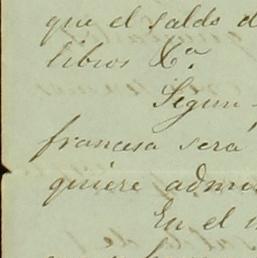 que el saldo d
libros &ª.
Segun
francesa sera
quiere admi
En el